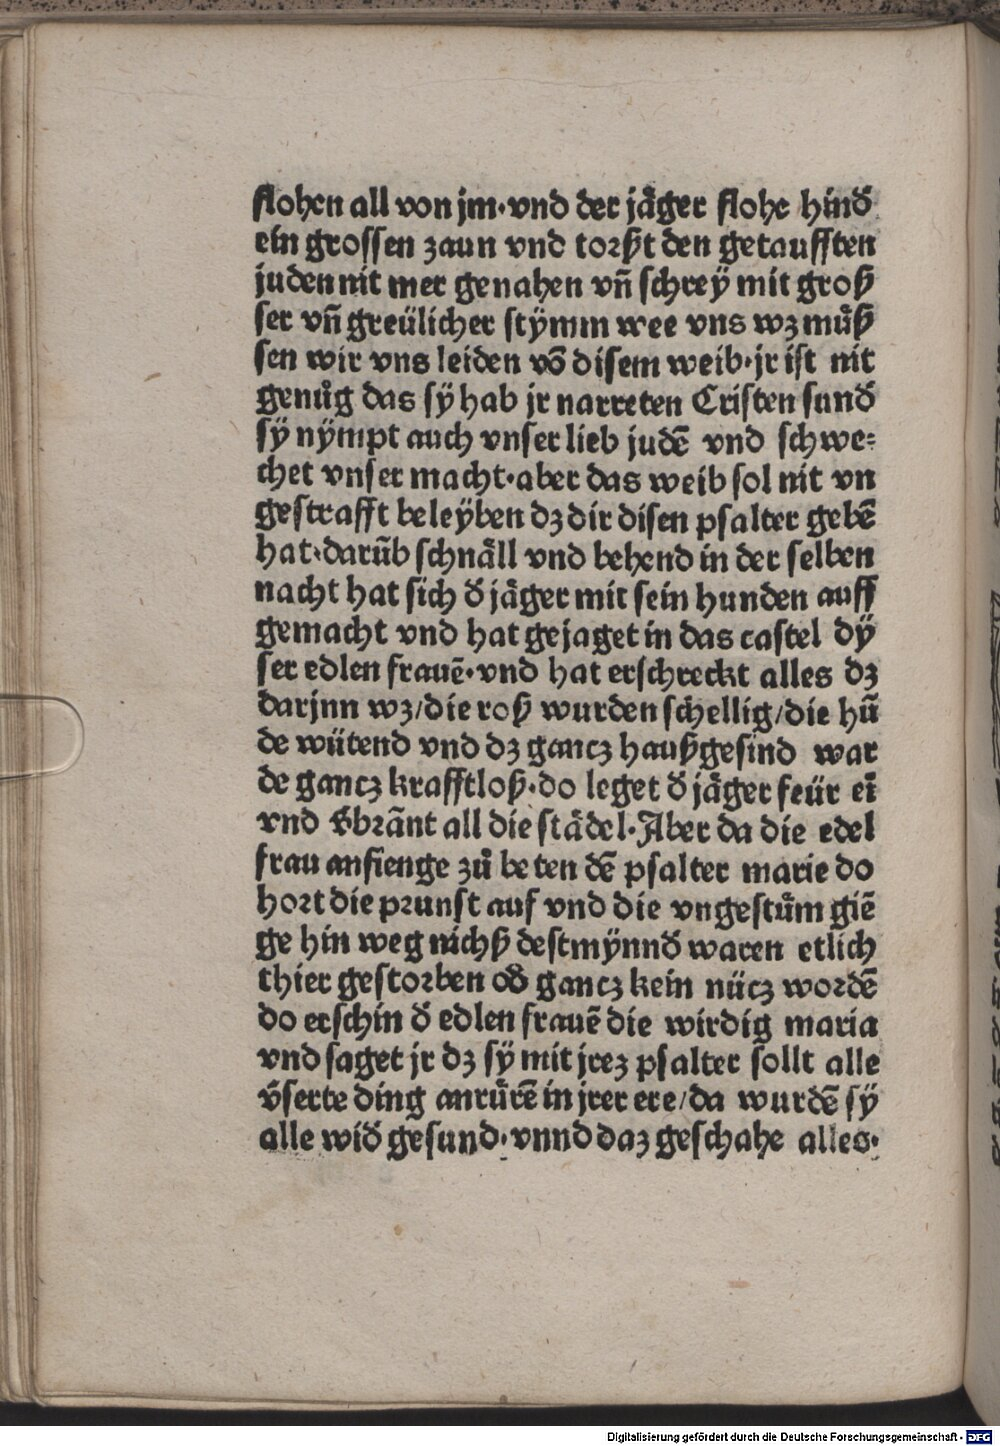 flohen all von jm·vnd der jäger flohe hind᷑
ein grossen zaun vnd torßt den getaufften
juden nit mer genahen vn̄ schrey mit groß
ser vn̄ greülicher stÿmm wee vns wz můß
sen wir vns leiden vō disem weib·jr ist nit
genůg das sÿ hab jr narreten Cristen sund᷑
sÿ nÿmpt auch vnser lieb judē vnd schwe⸗
chet vnser macht·aber das weib sol nit vn
gestrafft beleÿben dz dir disen psalter gebē
hat·darūb schnåll vnd behend in der selben
nacht hat sich d᷑ jåger mit sein hunden auff
gemacht vnd hat gejaget in das castel dÿ
ser edlen frauē·vnd hat erschreckt alles dz
darjnn wz/die roß wurden schellig/die hū
de wütend vnd dz gancz haußgesind war
de gancz krafftloß·do leget d᷑ jåger feür eī
vnd v᷑brānt all die städel·Aber da die edel
frau anfienge zů beten dē psalter marie do
hort die prunst auf vnd die vngestům giē
ge hin weg nichß destmÿnnd᷑ waren etlich
thier gestorben od᷑ gancz kein nücz wordē
do erschin d᷑ edlen frauē die wirdig maria
vnd saget jr dz sÿ mit jrez psalter sollt alle
v᷑serte ding anrůrē in jrer ere/da wurdē sÿ
alle wid᷑ gesund·vnnd daz geschahe alles·
Digitalisierung gefördert durch die Deutsche Forschungsgemeinschaft - DFG